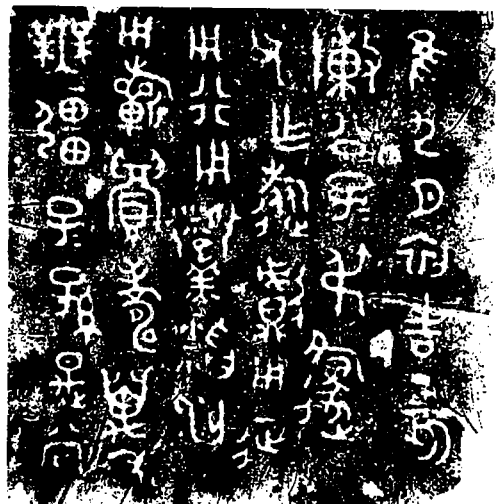 隹九月初吉丁亥
敶公子子弔邍
父乍旅甗用征
用行用稻粱
用祈眉壽萬年
無疆子孫是尚